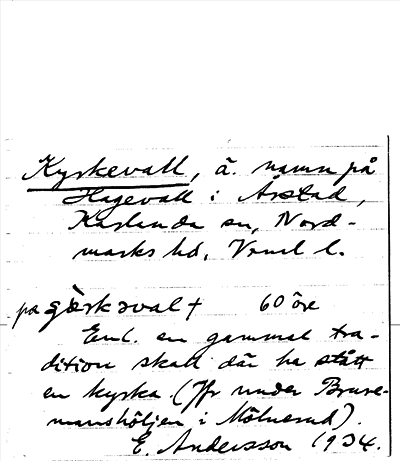 Kyrkevall, ä. namn på
Hagevall i Årstad,
Karlanda sn, Nord-
marks hd, Vrml l.
på 60 öre
Enl. en gammal tra-
dition skall där ha stått
en kyrka. (Jfr under Brure-
manshöljen i Mölnerud).
E. Andersson 1934.